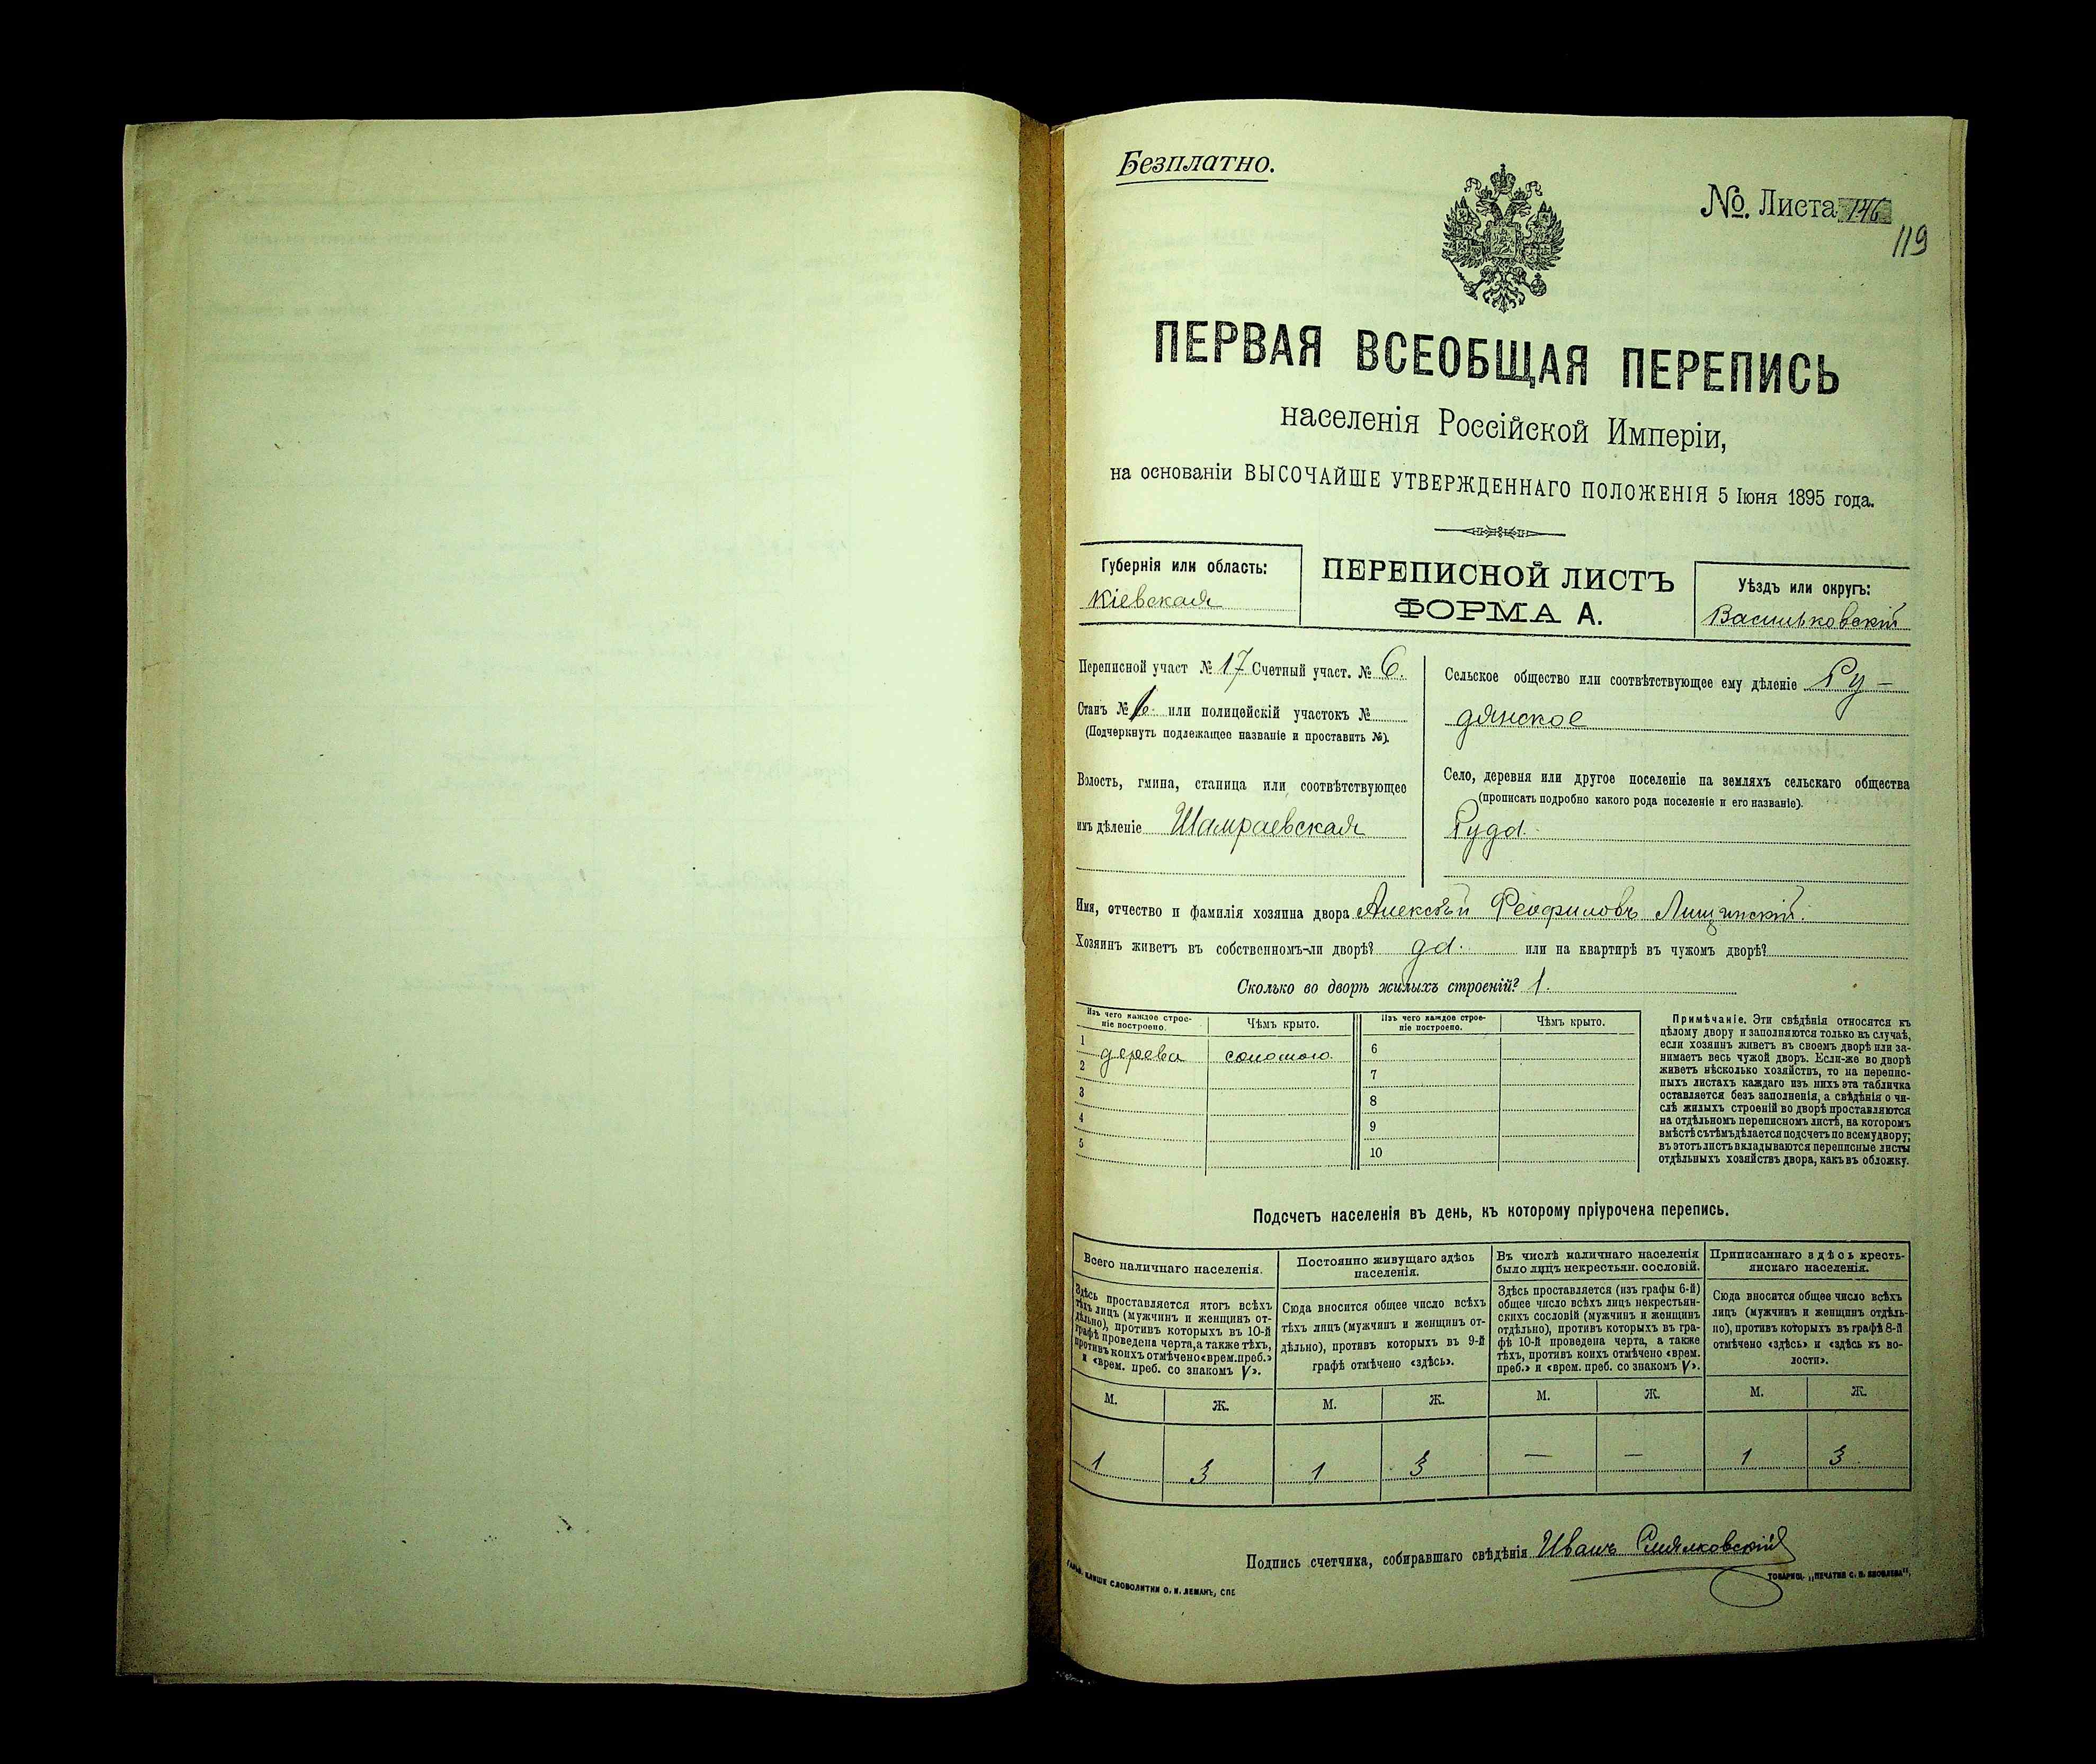 Безплатно.
№. Листа 146
119
ПЕРВАЯ ВСЕОБЩАЯ ПЕРЕПИСЬ
населенія Россійской Имперіи,
на основаніи ВЫСОЧАЙШЕ УТВЕРЖДЕННАГО ПОЛОЖЕНІЯ 5 Іюня 1895 года.
Губернія или область:
Кіевская
ПЕРЕПИСНОЙ ЛИСТЪ
ФОРМА А.
Уѣздъ или округъ:
Васильковскій
Переписной участ № 17 Счетный участ. № 6.
Станъ № или полицейскій участокъ №
(Подчеркнуть подлежащее названіе и проставить №).
Волость, гмина, станица или соотвѣтствующее
имъ дѣленіе Шамраевская
Сельское общество или соотвѣтствующее ему дѣленіе Ру-
дянское
Село, деревня или другое поселеніе на земляхъ сельскаго общества
(прописать подробно какого рода поселеніе и его названіе).
Руда.
Имя, отчество и фамилія хозяина двора Алексѣй Феофиловъ Лищинскій.
Хозяинъ живетъ въ собственномъ-ли дворѣ? да. или на квартирѣ въ чужомъ дворѣ?
Сколько во дворѣ жилыхъ строеній? 1.
Изъ чего каждое строе-
ніе построено.
Чѣмъ крыто.
Изъ чего каждое строе-
ніе построено.
Чѣмъ крыто.
1 дерева соломою
2
3
4
5
6
7
8
9
10
Примѣчаніе. Эти свѣдѣнія относятся къ
цѣлому двору и заполняются только въ случаѣ,
если хозяинъ живетъ въ своемъ дворѣ или за-
нимаетъ весь чужой дворъ. Если-же во дворѣ
живетъ нѣсколько хозяйствъ, то на перепис-
ныхъ листахъ каждаго изъ нихъ эта табличка
оставляется безъ заполненія, а свѣдѣнія о чи-
слѣ жилыхъ строеній во дворѣ проставляются
на отдѣльномъ переписномъ листѣ, на которомъ
вмѣстѣ съ тѣмъ дѣлается подсчетъ по всему двору;
въ этотъ листъ вкладываются переписные листы
отдѣльныхъ хозяйствъ двора, какъ въ обложку.
Подсчетъ населенія въ день, къ которому пріурочена перепись.
Всего наличнаго населенія.
Здѣсь проставляется итогъ всѣхъ
тѣхъ лицъ (мужчинъ и женщинъ от-
дѣльно), противъ которыхъ въ 10-й
графѣ проведена черта, а также тѣхъ,
противъ коихъ отмѣчено «врем. преб.»
и «врем. преб. со знакомъ V».
Постоянно живущаго здѣсь
населенія.
Сюда вносится общее число всѣхъ
тѣхъ лицъ (мужчинъ и женщинъ от-
дѣльно), противъ которыхъ въ 9-й
графѣ отмѣчено «здѣсь».
Въ числѣ наличнаго населенія
было лицъ некрестьян. сословій.
Здѣсь проставляется (изъ графы 6-й)
общее число всѣхъ лицъ некрестьян-
скихъ сословій (мужчинъ и женщинъ
отдѣльно), противъ которыхъ въ гра-
фѣ 10-й проведена черта, а также
тѣхъ, противъ коихъ отмѣчено «врем.
преб.» и «врем. преб. со знакомъ V».
Приписаннаго здѣсь кресть-
янскаго населенія.
Сюда вносится общее число всѣхъ
лицъ (мужчинъ и женщинъ отдѣль-
но), противъ которыхъ въ графѣ 8-й
отмѣчено «здѣсь» и «здѣсь къ во-
лости».
М. Ж. М. Ж. М. Ж. М. Ж.
1 3 1 3 — — 1 3
Подпись счетчика, собиравшаго свѣдѣнія Иванъ
СЛОВОЛИТНИ О. И. ЛЕМАНЪ, СПБ
ТОВАРИЩ. „ПЕЧАТНЯ С. П. ЯКОВЛЕВА“.